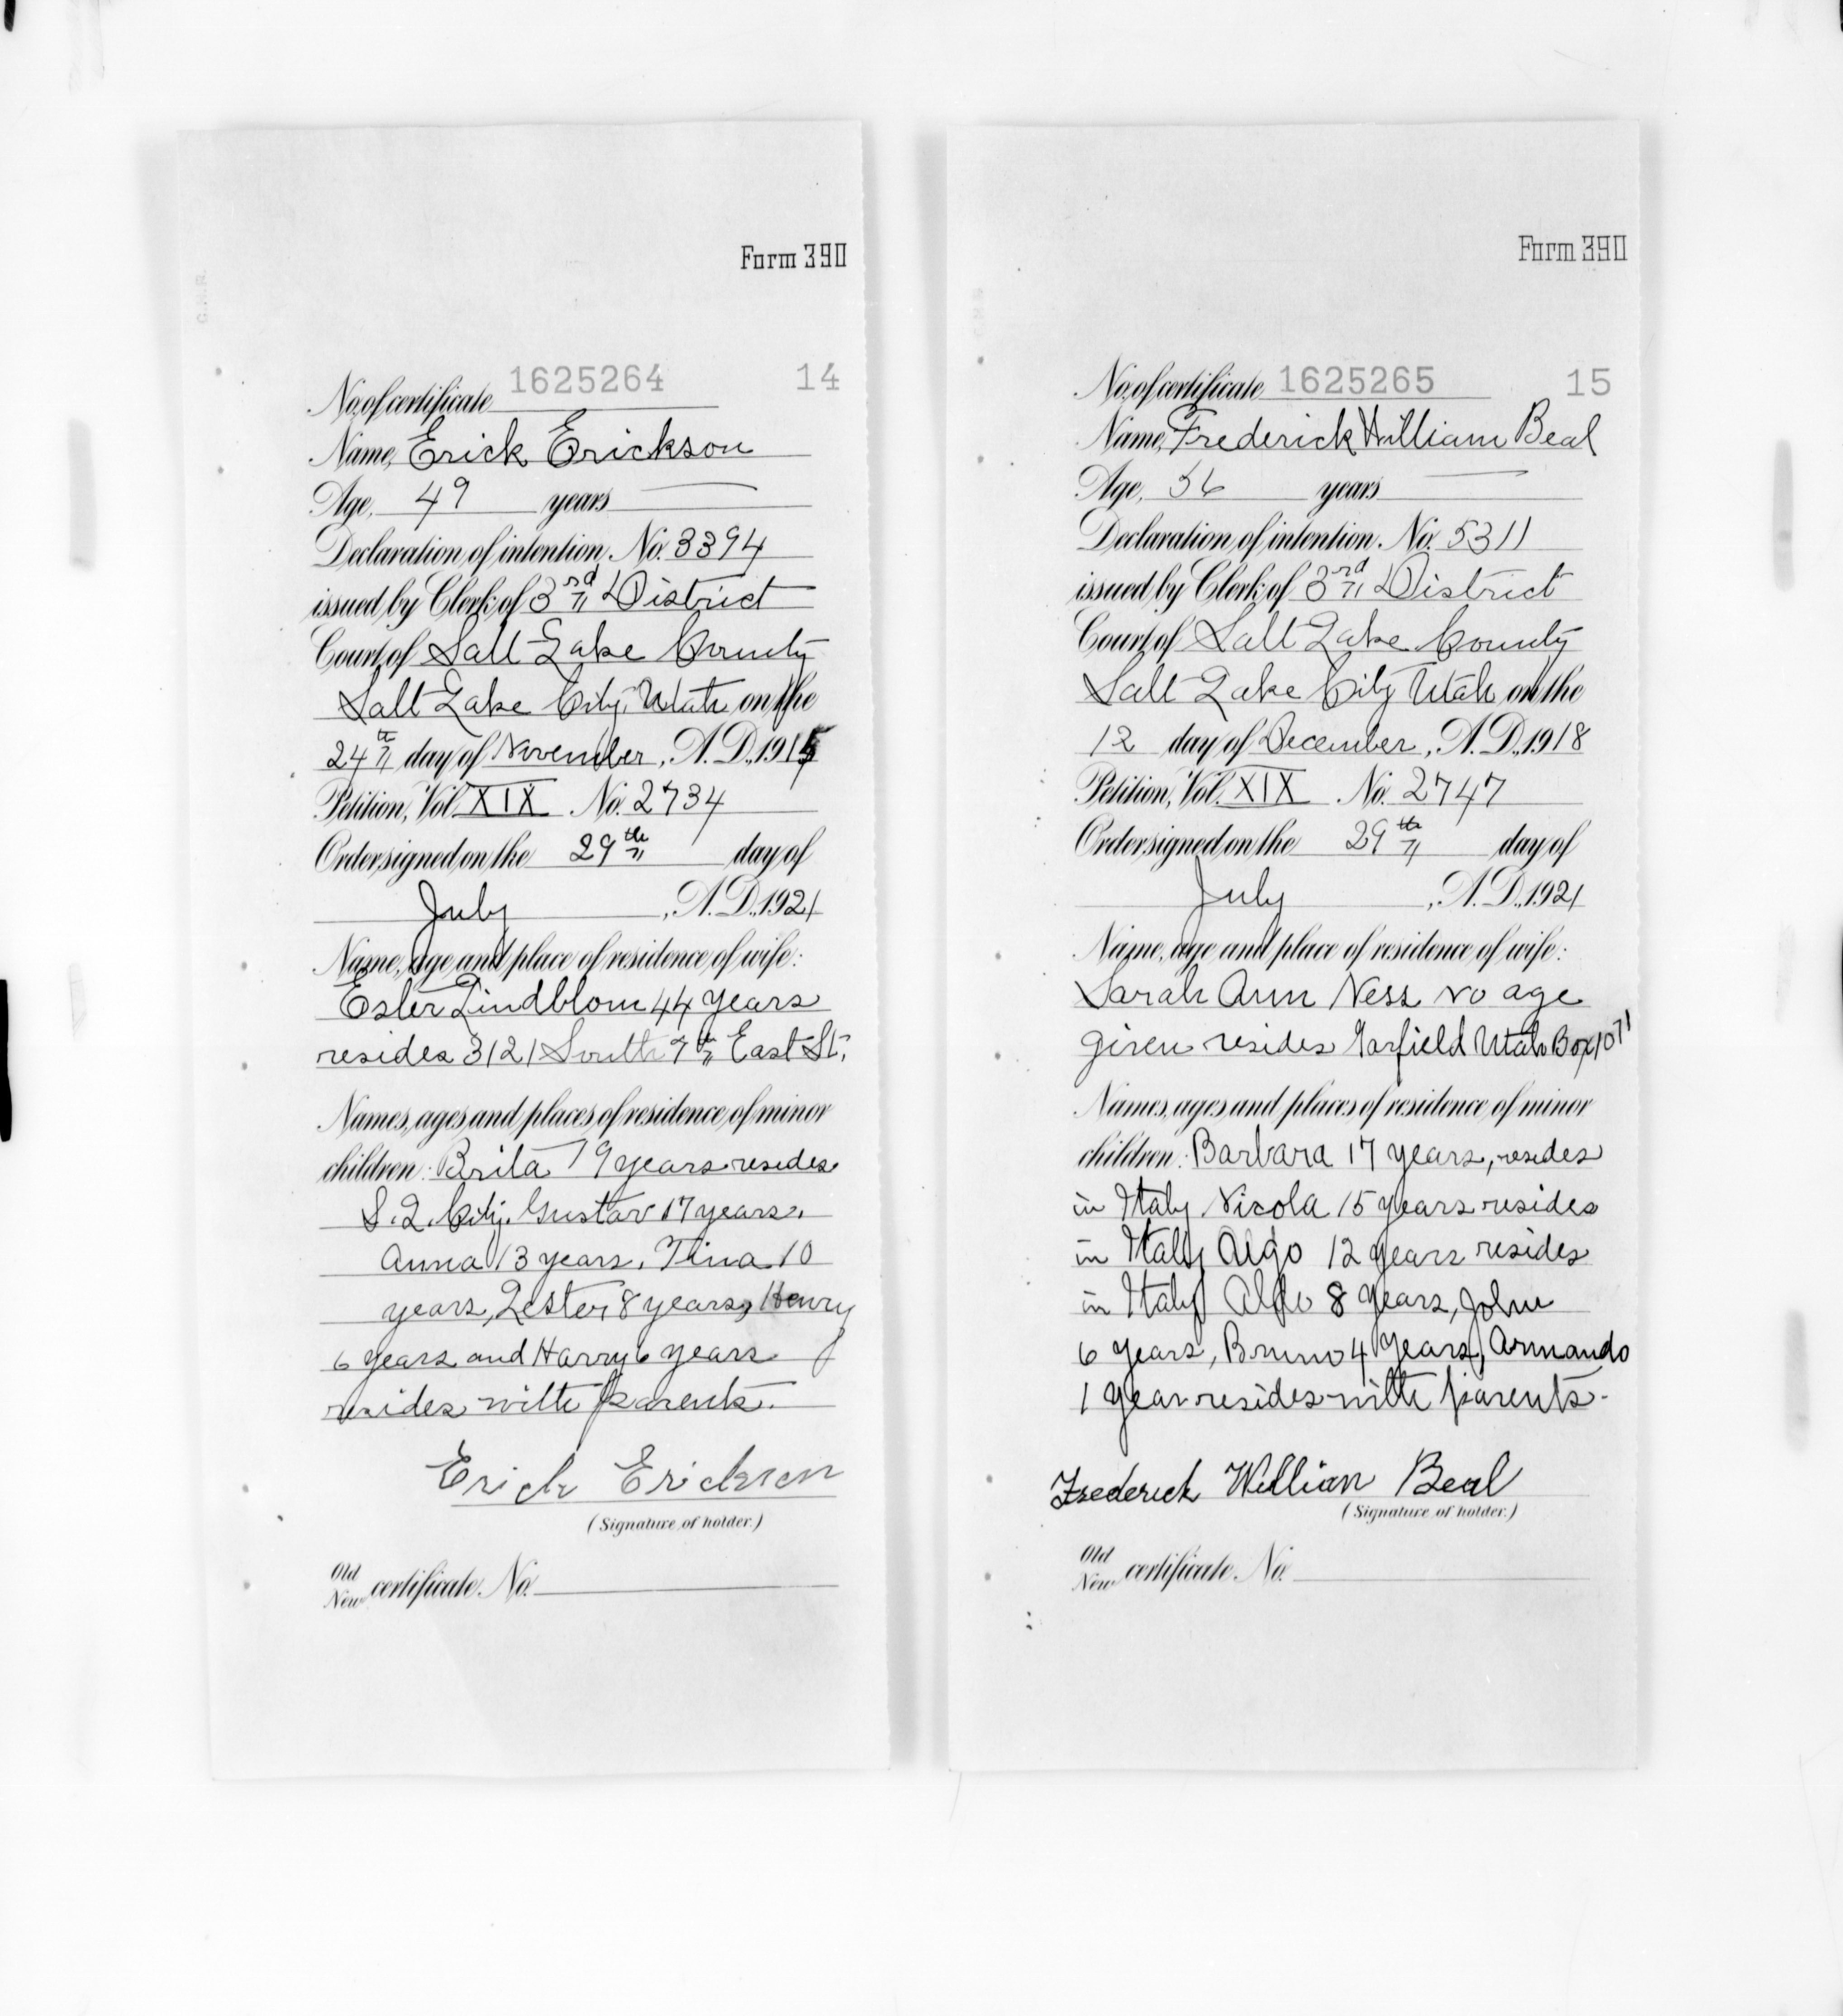 Form 390
No. of certificate 1625264 14
Name, Erick Erickson
Age, 49 years
Declaration of intention, No. 3394
issued by Clerk of 3rd District
Court of Salt Lake County
Salt Lake City, Utah on the
24th day of November, A.D. 191
Petition, Vol. XIX No. 2734
Order signed on the 29th day of
July, A.D. 1921
Name, age and place of residence of wife:
Ester Lindblom 44 years
resides 3121 South 7th East St.
Names, ages and places of residence of minor
children: Brita 19 years resides
S. L. City. Gustav 17 years.
Anna 13 years. Tina 10
years, Lester 8 years, Henry
6 years and Harry 6 years
resides with parents.
Erick Erickson
(Signature of holder.)
Old
New certificate No.
Form 390
No. of certificate 1625265 15
Name, Frederick William Beal
Age, 36 years
Declaration of intention, No. 5311
issued by Clerk of 3rd District
Court of Salt Lake County
Salt Lake City Utah on the
12 day of December, A.D. 1918
Petition, Vol. XIX No. 2747
Order signed on the 29th day of
July, A.D. 1921
Name, age and place of residence of wife:
Sarah Ann Ness no age
given resides Garfield Utah Box 1071
Names, ages and places of residence of minor
children: Barbara 17 years, resides
in Italy Nicola 15 years resides
in Italy 12 years resides
in Italy Aldo 8 years, John
6 years, Bruno 4 years, Armando
1 year resides with parents.
Frederick William Beal
(Signature of holder.)
Old
New certificate No.